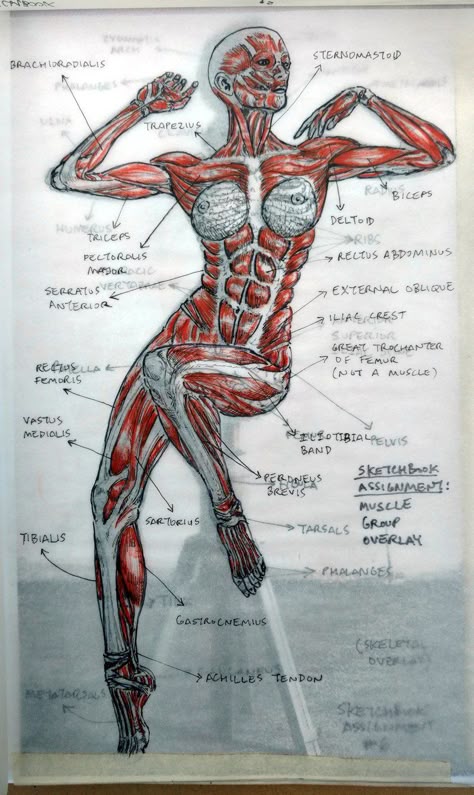 BRACHIORADIALIS
STERNOMASTOID
ZYGOMATIC
ARCH
PHALANGES
ULNA
TRAPEZIUS
HUMERUS
BICEPS
DELTOID
TRICEPS
RIBS
PECTORALIS
MAJOR
RECTUS ABDOMINUS
SERRATUS
ANTERIOR
EXTERNAL OBLIQUE
ILIAC CREST
SUPERIOR
GREAT TROCHANTER
OF FEMUR
(NOT A MUSCLE)
RECTUS
FEMORIS
VASTUS
MEDIALIS
ILIOTIBIAL
BAND
PELVIS
SKETCHBOOK
ASSIGNMENT:
MUSCLE
GROUP
OVERLAY
PERONEUS
BREVIS
SARTORIUS
TARSALS
TIBIALIS
PHALANGES
GASTROCNEMIUS
(SKELETAL
OVERLAY)
ACHILLES TENDON
METATARSALS
SKETCHBOOK
ASSIGNMENT